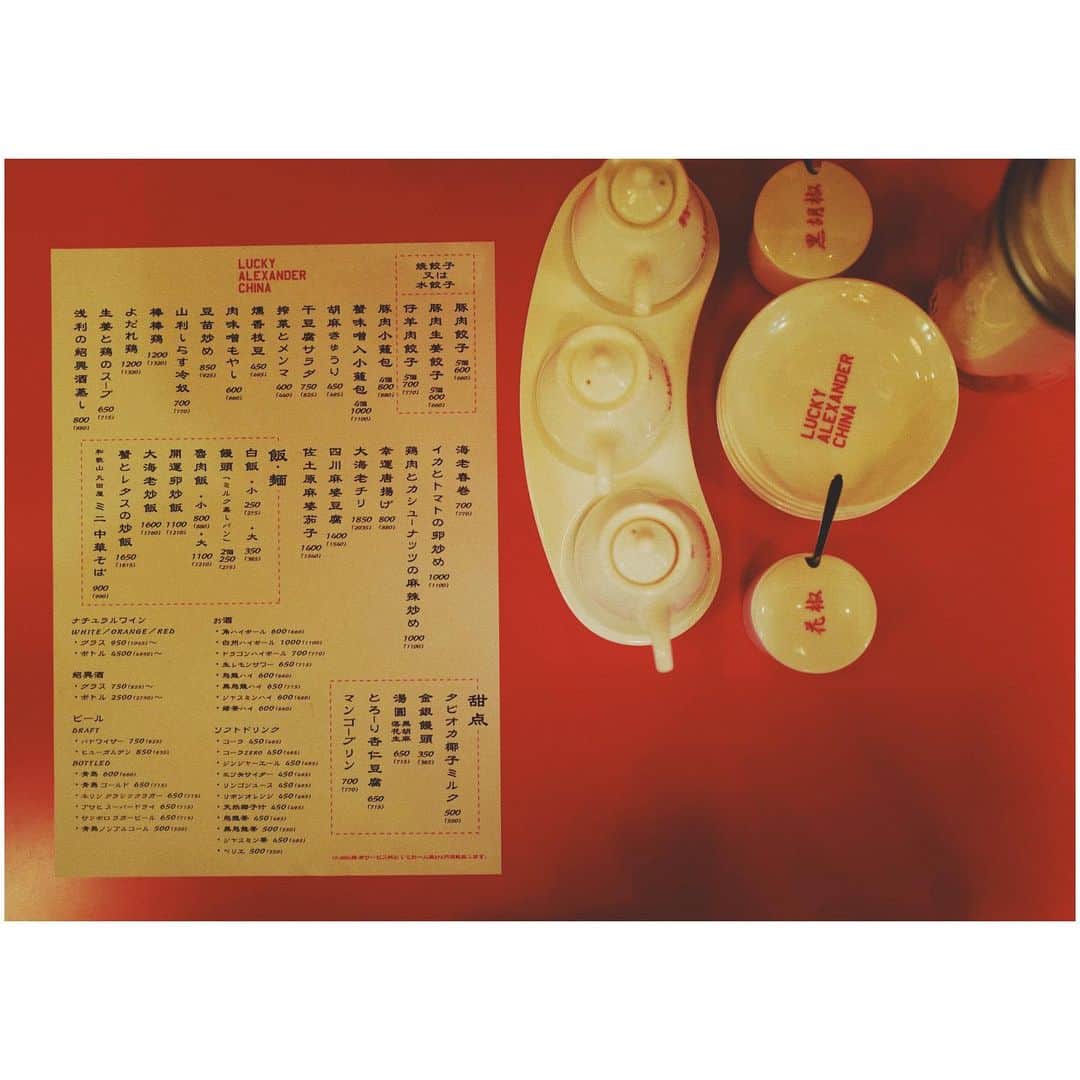 LUCKY
ALEXANDER
CHINA
焼餃子
又は
水餃子
豚肉餃子 5個 600 (660)
豚肉生姜餃子 5個 600 (660)
仔羊肉餃子 5個 700 (770)
豚肉小籠包 4個 800 (880)
蟹味噌入小籠包 4個 1000 (1100)
胡麻きゅうり 650
干豆腐サラダ 750 (825)
搾菜とメンマ 400 (440)
燻香枝豆 450
肉味噌もやし 600 (660)
豆苗炒め 850
山利しらす冷奴 700 (770)
棒棒鶏 1200 (1320)
よだれ鶏 1200 (1320)
生姜と鶏のスープ 650 (715)
浅利の紹興酒蒸し 800 (880)
海老春巻 700 (770)
イカとトマトの卵炒め 1000 (1100)
鶏肉とカシューナッツの麻辣炒め 1000 (1100)
幸運唐揚げ 800 (880)
大海老チリ 1850 (2035)
四川麻婆豆腐 1400 (1540)
佐土原麻婆茄子 1400 (1540)
飯・麺
白飯・小 250 (275) ・大 350 (385)
饅頭(ミルク蒸しパン) 2個 250 (275)
魯肉飯・小 800 (880) ・大 1100 (1210)
開運卵炒飯 1100 (1210)
大海老炒飯 1600 (1760)
蟹とレタスの炒飯 1650 (1815)
和歌山 丸田屋 ミニ 中華そば 900 (990)
ナチュラルワイン
WHITE/ORANGE/RED
・グラス 950(1045)〜
・ボトル 4500(4950)〜
紹興酒
・グラス 750(825)〜
・ボトル 2500(2750)〜
ビール
DRAFT
・バドワイザー 750(825)
・ヒューガルデン 850(935)
BOTTLED
・青島 600(660)
・青島ゴールド 650(715)
・キリンクラシックラガー 650(715)
・アサヒスーパードライ 650(715)
・サッポロラガービール 650(715)
・青島ノンアルコール 500(550)
お酒
・角ハイボール 600(660)
・白州ハイボール 1000(1100)
・ドラゴンハイボール 700(770)
・生レモンサワー 650(715)
・烏龍ハイ 600(660)
・黒烏龍ハイ 650(715)
・ジャスミンハイ 600(660)
・緑茶ハイ 600(660)
ソフトドリンク
・コーラ 450(495)
・コーラZERO 450(495)
・ジンジャーエール 450(495)
・三ツ矢サイダー 450(495)
・リンゴジュース 450(495)
・リボンオレンジ 450(495)
・天然椰子汁 450(495)
・烏龍茶 450(495)
・黒烏龍茶 500(550)
・ジャスミン茶 450(495)
・ペリエ 500(550)
甜点
タピオカ椰子ミルク 500 (550)
金銀饅頭 350 (385)
湯圓 黒胡麻 落花生 650 (715)
とろ〜り杏仁豆腐 650 (715)
マンゴープリン 700 (770)
黒胡椒
LUCKY
ALEXANDER
CHINA
花椒